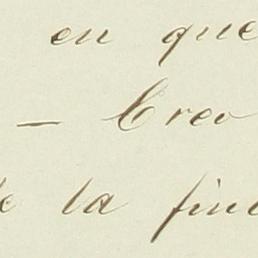 en que
— Creo
de la fin